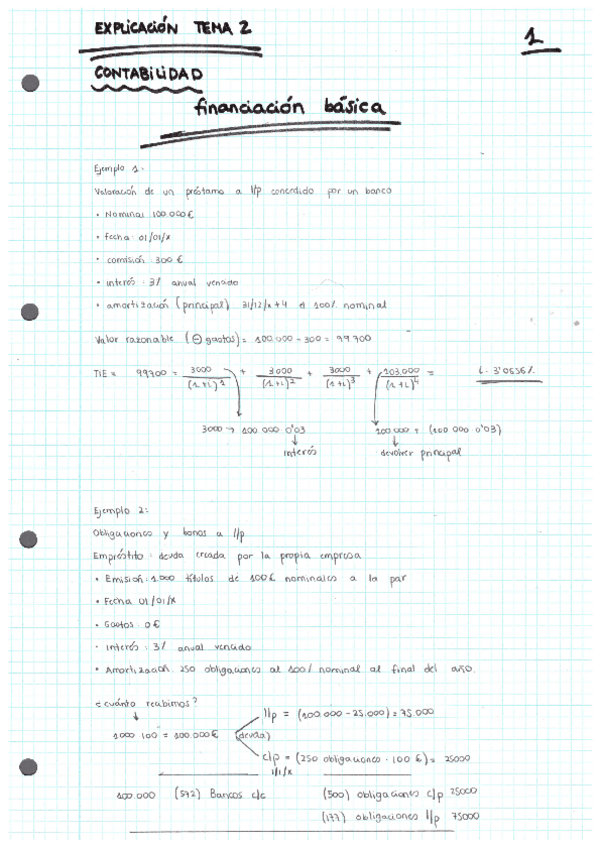 EXPLICACIÓN TEMA 2
1
CONTABILIDAD
financiación básica
Ejemplo 1:
Valoración de un préstamo a l/p concedido por un banco
• Nominal 100.000€
• fecha 01/01/x
• comisión 300€
• interés 3% anual vencido
• amortización (principal) 31/12/x+4 el 100% nominal
Valor razonable (⊖ gastos) = 100.000 - 300 = 99 700
TIE = 99700 = 3000/(1+i)^1 + 3000/(1+i)^2 + 3000/(1+i)^3 + 103.000/(1+i)^4 = i = 3'0536%
3000 → 100 000 0'03
100.000 + (100 000 0'03)
interés
devolver principal
Ejemplo 2:
Obligaciones y bonos a l/p
Empréstito: deuda creada por la propia empresa
• Emisión: 1.000 títulos de 100€ nominales a la par
• Fecha 01/01/x
• Gastos: 0€
• interés: 3% anual vencido
• Amortización: 250 obligaciones al 100% nominal al final del año.
¿cuánto recibimos?
l/p = (100.000 - 25.000) = 75.000
1000 100 = 100.000€ (deuda)
c/p = (250 obligaciones · 100€) = 25000
1/1/x
100.000 (572) Bancos c/c (500) obligaciones c/p 25000
(177) obligaciones l/p 75000